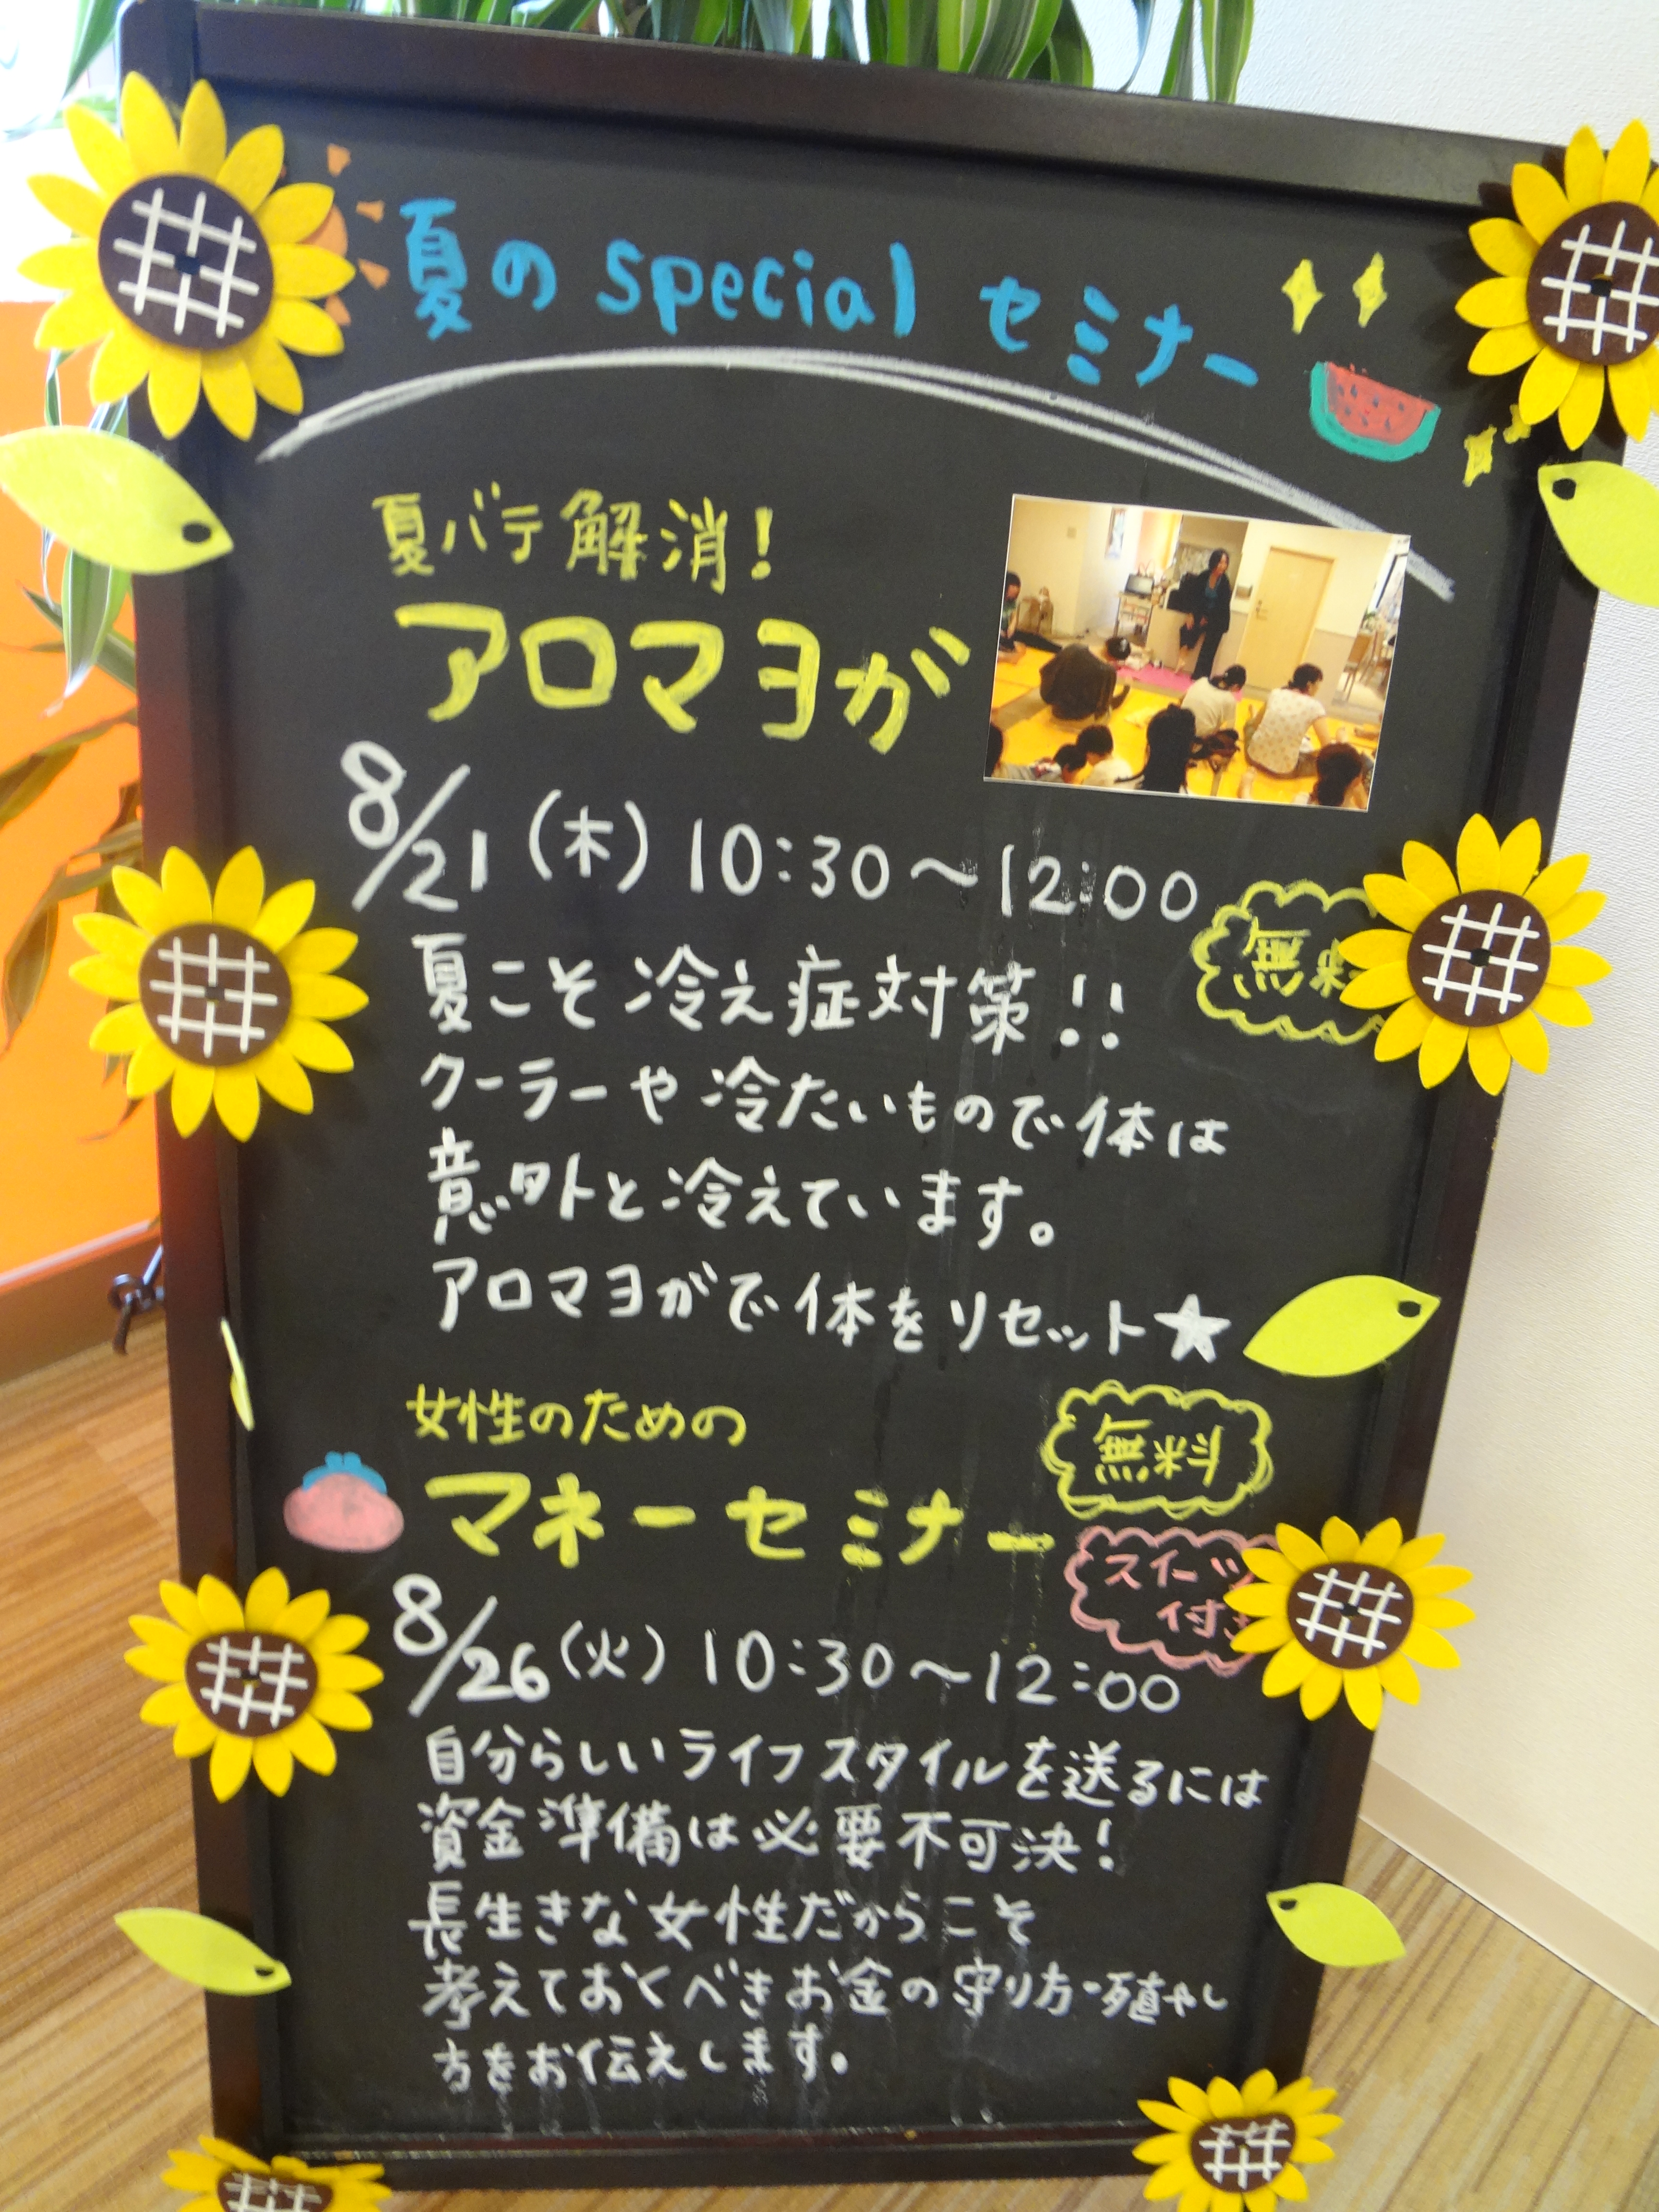 夏のspecialセミナー
夏バテ解消!
アロマヨガ
8/21(木)10:30～12:00
無料
夏こそ冷え症対策!!
クーラーや冷たいもので体は
意外と冷えています。
アロマヨガで体をリセット★
女性のための
マネーセミナー
無料
スイーツ
付き
8/26(火)10:30～12:00
自分らしいライフスタイルを送るには
資金準備は必要不可決!
長生きな女性だからこそ
考えておくべきお金の守り方・殖やし
方をお伝えします。